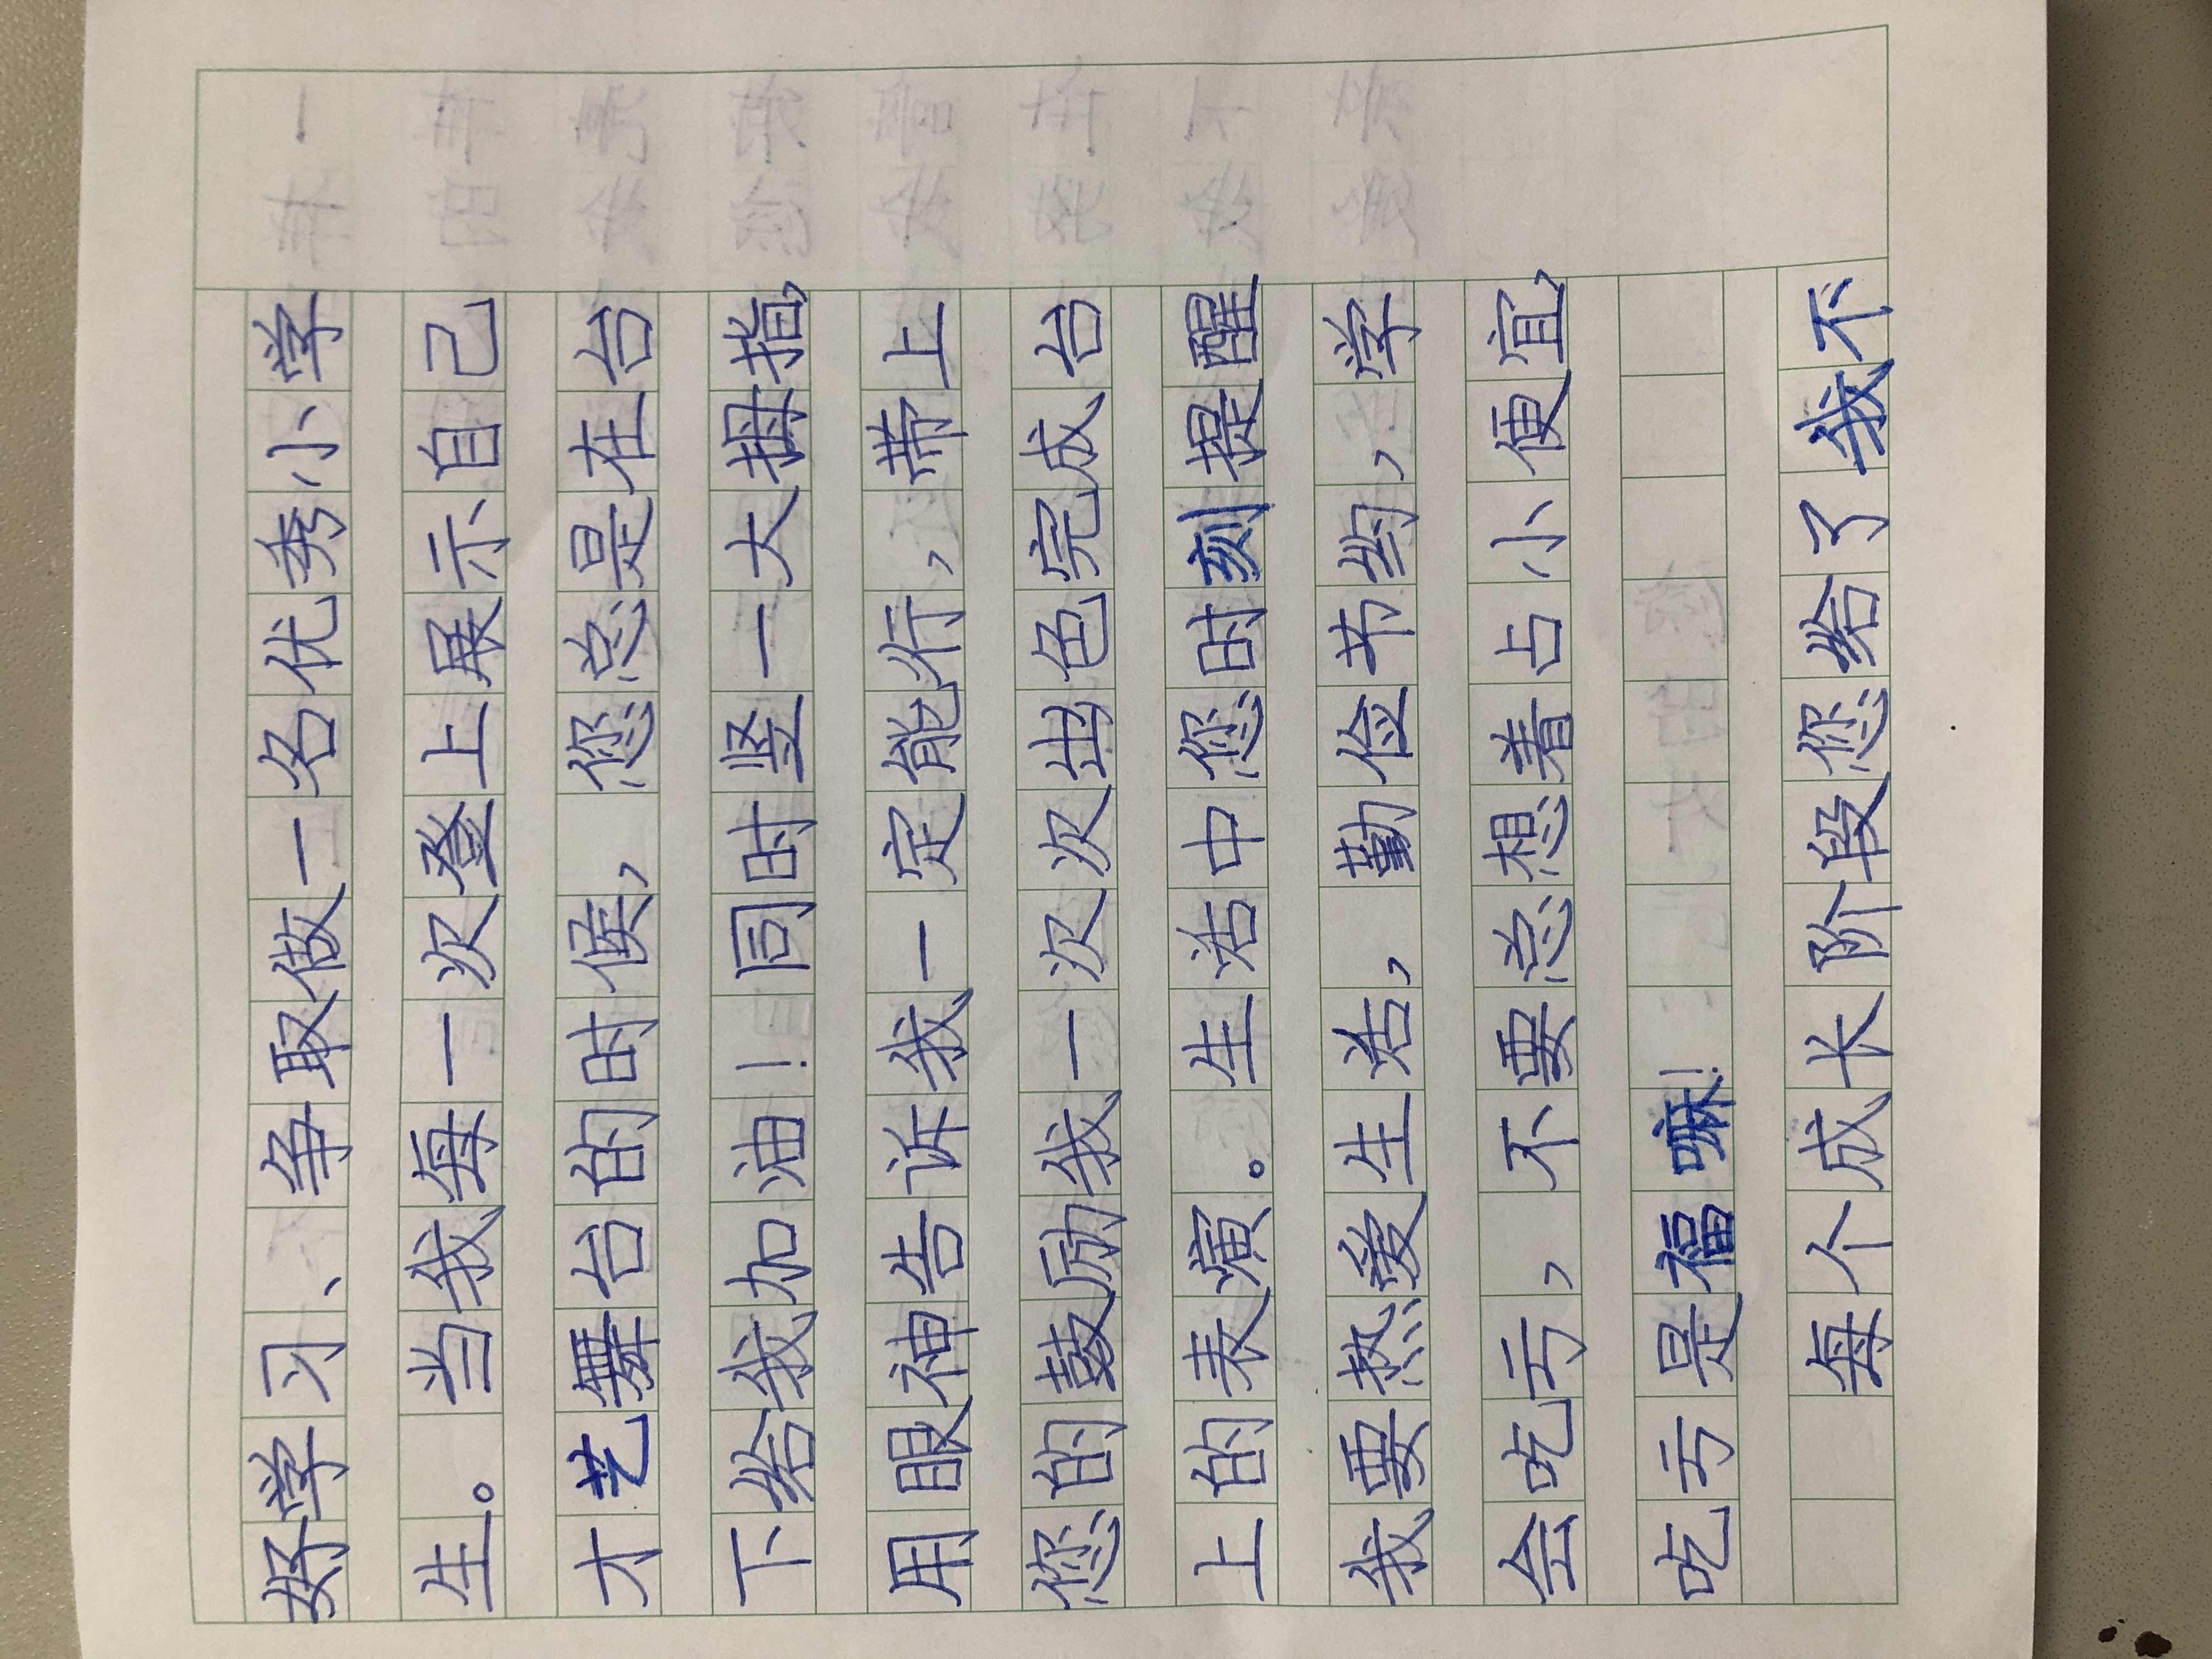 好学习、争取做一名优秀小学
生。当我每一次登上展示自己
才艺舞台的时候，您总是在台
下给我加油！同时竖一大拇指，
用眼神告诉我一定能行，带上
您的鼓励我一次次出色完成台
上的表演。生活中您时刻提醒
我要热爱生活，勤俭节约，学
会吃亏，不要总想着占小便宜，
吃亏是福嘛！
每个成长阶段您给了我不